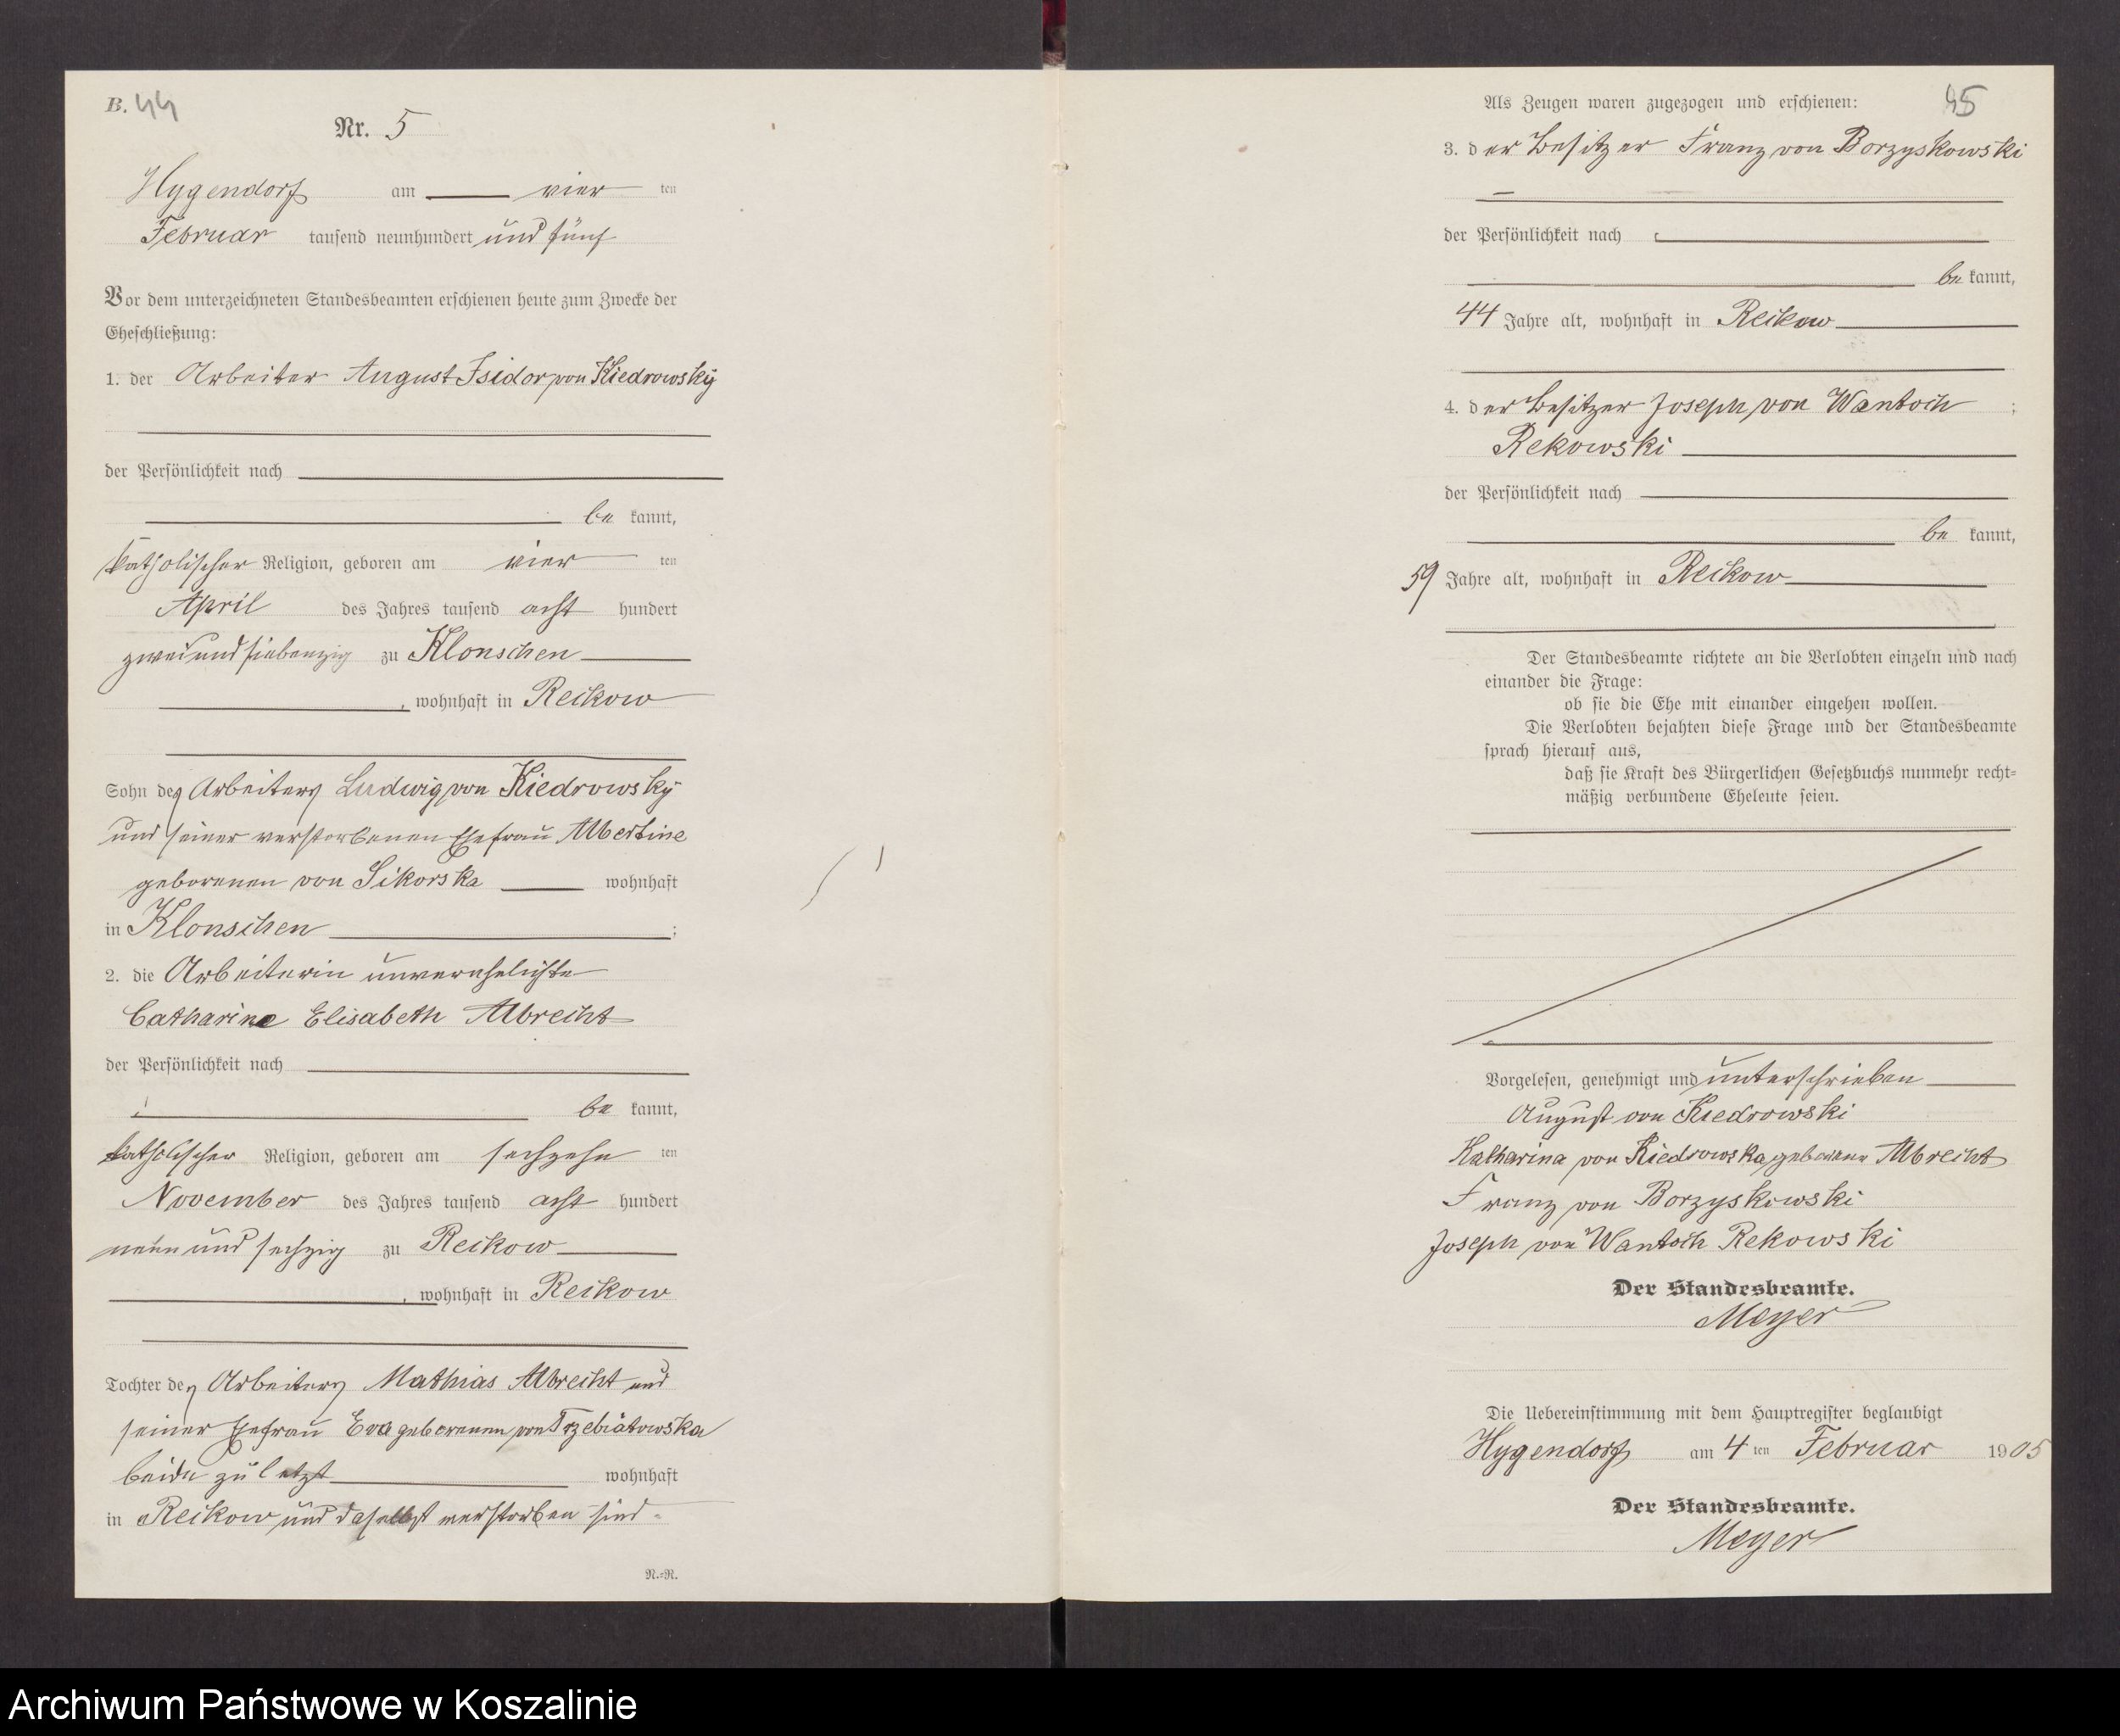 B. 44
Nr. 5
Hygendorf am vier ten
Februar tausend neunhundert und fünf
Vor dem unterzeichneten Standesbeamten erschienen heute zum Zwecke der
Eheschließung:
1. der Arbeiter August Isidor von Kiedrowsky
der Persönlichkeit nach
be kannt,
katholischer Religion, geboren am vier ten
April des Jahres tausend acht hundert
zwei und siebenzig zu Klonschen
, wohnhaft in Reikow
Sohn des Arbeiters Ludwig von Kiedrowsky
und seiner verstorbenen Ehefrau Albertine
geborenen von Sikorska wohnhaft
in Klonschen ;
2. die Arbeiterin unverehelichte
Catharina Elisabeth Albrecht
der Persönlichkeit nach
be kannt,
katholischer Religion, geboren am sechzehn ten
November des Jahres tausend acht hundert
neun und sechzig zu Reikow
, wohnhaft in Reikow
Tochter des Arbeiters Mathias Albrecht und
seiner Ehefrau Eva geborenen von Trzebiatowska
beide zuletzt wohnhaft
in Reikow und daselbst verstorben sind.
N.=N.
Als Zeugen waren zugezogen und erschienen: 45
3. der Besitzer Franz von Borzyskowski
der Persönlichkeit nach
be kannt,
44 Jahre alt, wohnhaft in Reikow
4. der Besitzer Joseph von Wantoch ;
Rekowski
der Persönlichkeit nach
be kannt,
59 Jahre alt, wohnhaft in Reikow
Der Standesbeamte richtete an die Verlobten einzeln und nach
einander die Frage:
ob sie die Ehe mit einander eingehen wollen.
Die Verlobten bejahten diese Frage und der Standesbeamte
sprach hierauf aus,
daß sie Kraft des Bürgerlichen Gesetzbuchs nunmehr recht=
mäßig verbundene Eheleute seien.
Vorgelesen, genehmigt und unterschrieben
August von Kiedrowski
Katharina von Kiedrowska geborene Albrecht
Franz von Borzyskowski
Joseph von Wantoch Rekowski
Der Standesbeamte.
Meyer
Die Uebereinstimmung mit dem Hauptregister beglaubigt
Hygendorf am 4 ten Februar 1905
Der Standesbeamte.
Meyer
Archiwum Państwowe w Koszalinie